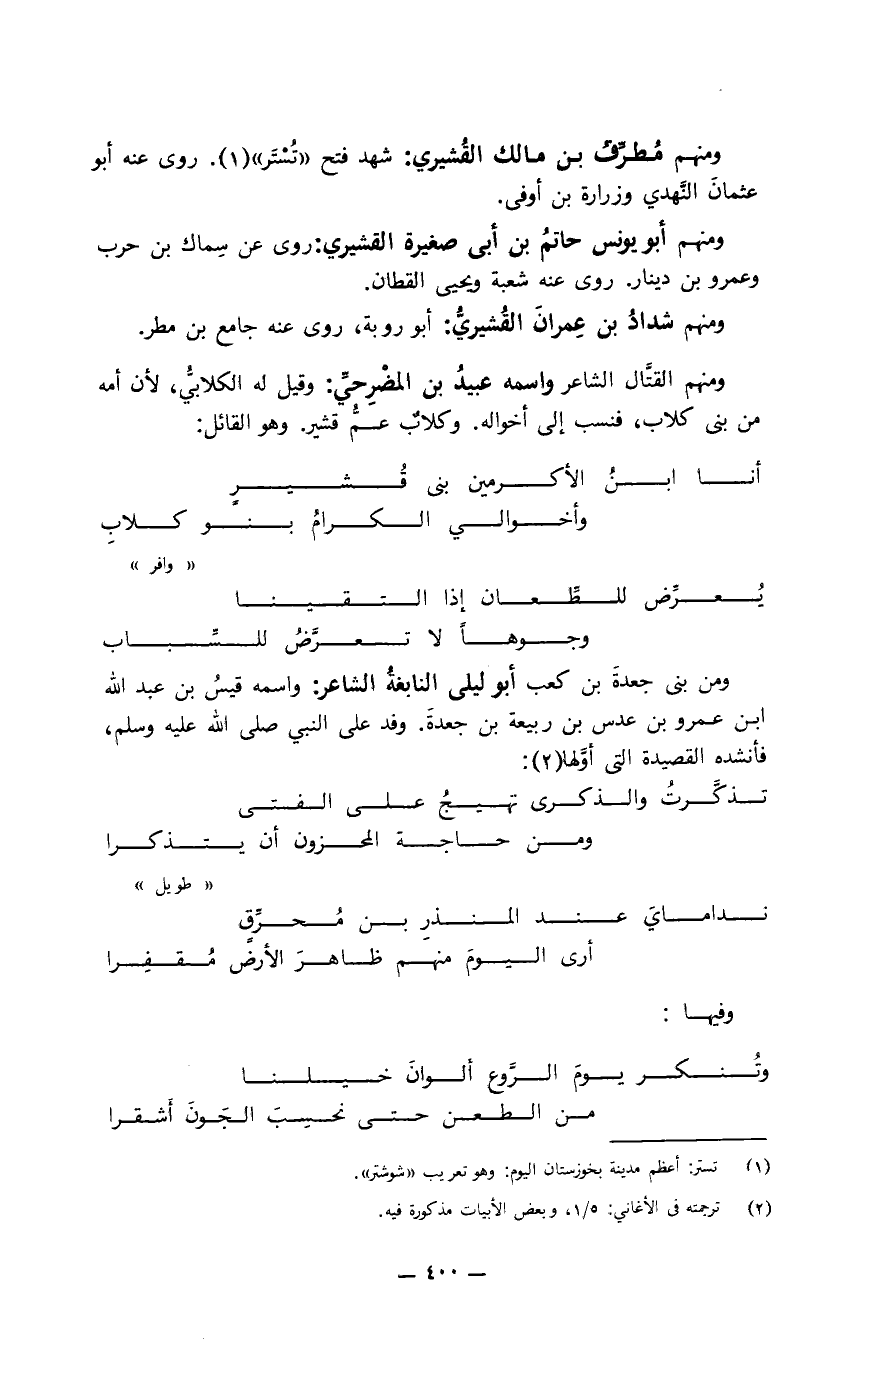 ومنهم مُطرِّفُ بن مالك القُشيري: شهد فتح «تُسْتَر»(١). روى عنه أبو
عثمانَ النَّهدي وزرارة بن أوفى.
ومنهم أبو يونس حاتمُ بن أبى صغيرة القشيري:روى عن سِماك بن حرب
وعمرو بن دينار. روى عنه شعبة ويحيى القطان.
ومنهم شدادُ بن عِمرانَ القُشيريُّ: أبو روبة، روى عنه جامع بن مطر.
ومنهم القتَّال الشاعر واسمه عبيدُ بن المضْرِحيِّ: وقيل له الكلابيُّ، لأن أمه
من بنى كلاب، فنسب إلى أخواله. وكلابٌ عمُّ قشير. وهو القائل:
أنا ابنُ الأكرمين بنى قُشيرٍ
وأخوالي الكرامُ بنو كلابِ
« وافر »
يُعرِّض للطِّعان إذا التقينا
وجوهاً لا تعرَّضُ للسِّباب
ومن بنى جعدةَ بن كعب أبو ليلى النابغةُ الشاعر: واسمه قيسُ بن عبد الله
ابن عمرو بن عدس بن ربيعة بن جعدةَ. وفد على النبي صلى الله عليه وسلم،
فأنشده القصيدة التى أوَّلها(٢):
تذكَّرتُ والذكرى تهيجُ على الفتى
ومن حاجة المحزون أن يتذكرا
« طويل »
ندامايَ عند المنذرِ بن مُحرِّقٍ
أرى اليومَ منهم ظاهرَ الأرض مُقفِرا
وفيها :
وتُنكر يومَ الرَّوع ألوانَ خيلنا
من الطعن حتى نحسِبَ الجَونَ أشقرا
(١) تستر: أعظم مدينة بخوزستان اليوم: وهو تعريب «شوشتر».
(٢) ترجمته فى الأغاني: ١/٥، وبعض الأبيات مذكورة فيه.
— ٤٠٠ —